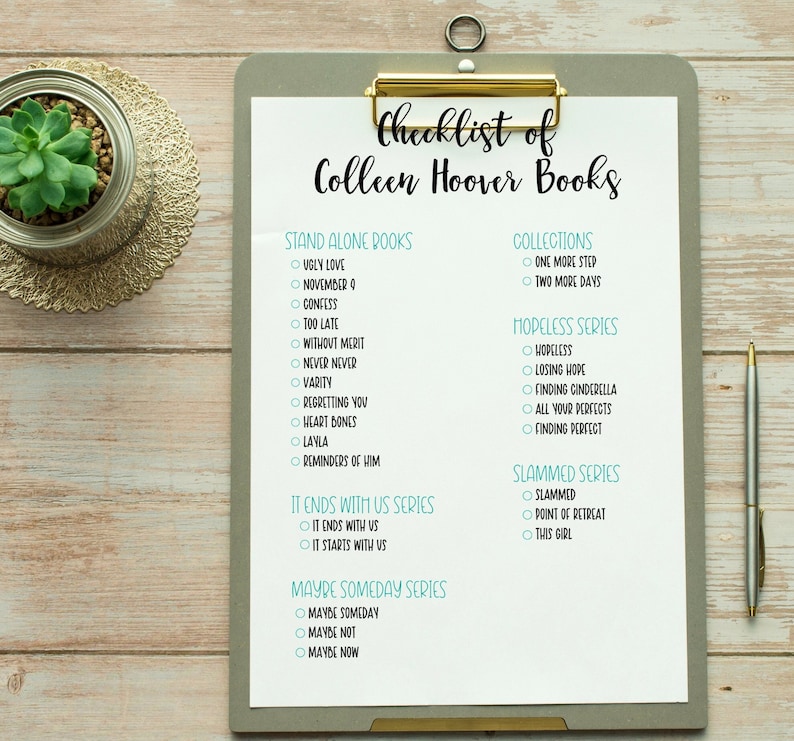 Checklist of
Colleen Hoover Books
STAND ALONE BOOKS
UGLY LOVE
NOVEMBER 9
CONFESS
TOO LATE
WITHOUT MERIT
NEVER NEVER
VARITY
REGRETTING YOU
HEART BONES
LAYLA
REMINDERS OF HIM
IT ENDS WITH US SERIES
IT ENDS WITH US
IT STARTS WITH US
MAYBE SOMEDAY SERIES
MAYBE SOMEDAY
MAYBE NOT
MAYBE NOW
COLLECTIONS
ONE MORE STEP
TWO MORE DAYS
HOPELESS SERIES
HOPELESS
LOSING HOPE
FINDING CINDERELLA
ALL YOUR PERFECTS
FINDING PERFECT
SLAMMED SERIES
SLAMMED
POINT OF RETREAT
THIS GIRL